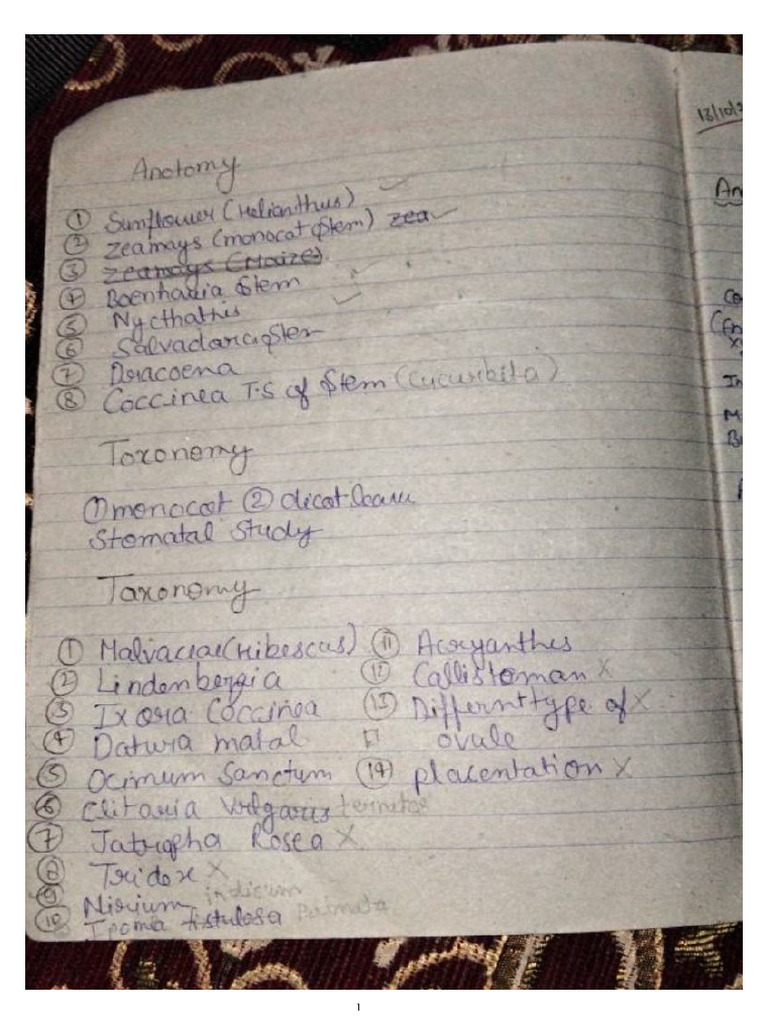 Anotomy
① Sunflower (Helianthus) ✓
② Zeamays (monocot stem) zea ✓
③ Zeamays (Maize)
④ Boenhavia stem
⑤ Nycthathis
⑥ Salvadora stem
⑦ Dracoena
⑧ Coccinea T.S of stem (Cucurbita)
Toxonomy
① monocot ② dicot
Stomatal study
Taxonomy
① Malvaciae (Hibescus)
② Lindenbergia
③ Ixora Coccinea
④ Datura matal
⑤ Ocimum Sanctum
⑥ Clitaria Vulgaris
⑦ Jatropha Rosea X
⑧ Tridox X
⑨ Nirium indicum
⑩ Ipoma fistulosa Palmata
⑪ Acryanthes
⑫ Callistoman X
⑬ Differnt type of X
ovule
⑭ placentation X
An
Co
In
M
1